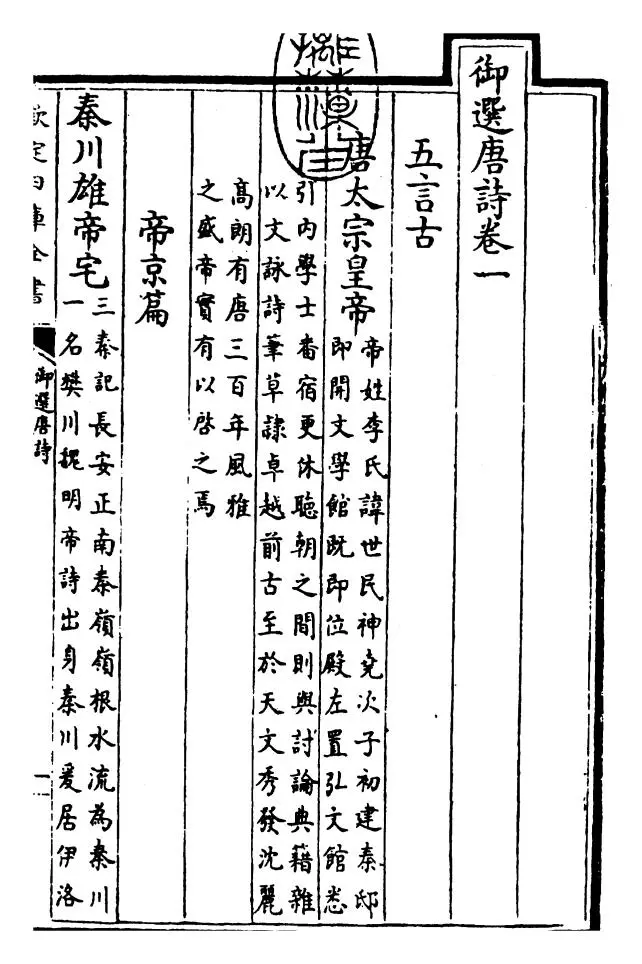 御選唐詩卷一
五言古
唐太宗皇帝
帝姓李氏諱世民神堯次子初建秦邸
即開文學館既即位殿左置弘文館悉
引内學士番宿更休聽朝之間則與討論典籍雜
以文詠詩筆草隸卓越前古至於天文秀發沈麗
高朗有唐三百年風雅
之盛帝實有以啓之焉
帝京篇
秦川雄帝宅
三秦記長安正南秦嶺嶺根水流為秦川
一名樊川魏明帝詩出身秦川爰居伊洛
欽定四庫全書
御選唐詩
一